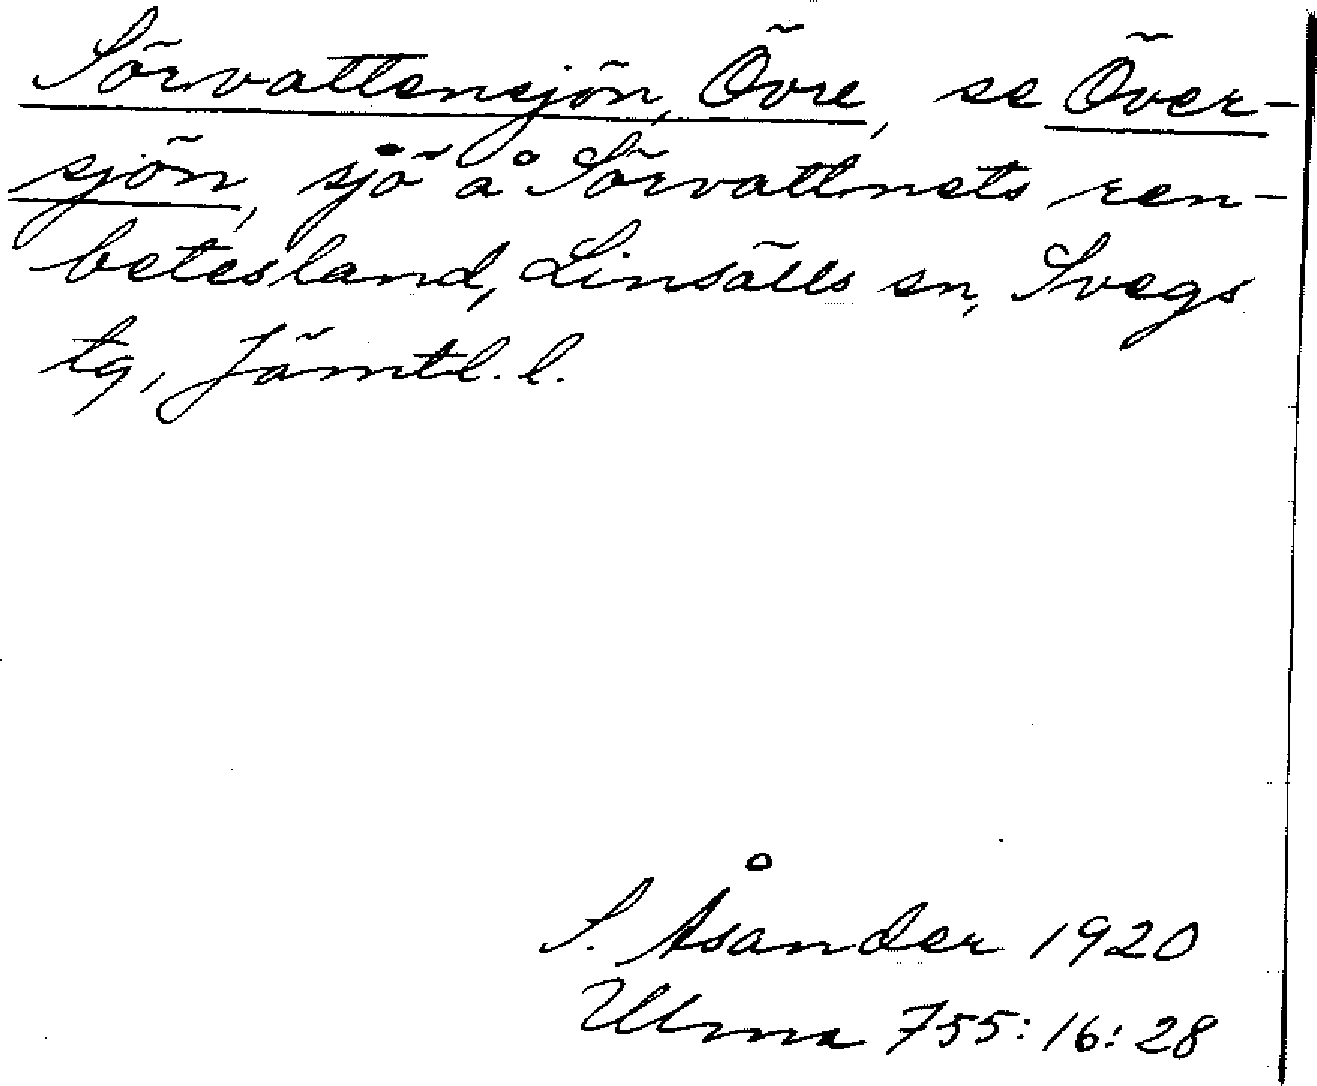 Sörvattensjön, Övre, se Över-
sjön, sjö å Sörvattnets ren-
betesland, Linsälls sn, Svegs
tg, Jämtl. l.
S. Åsander 1920
Ulma 755:16:28